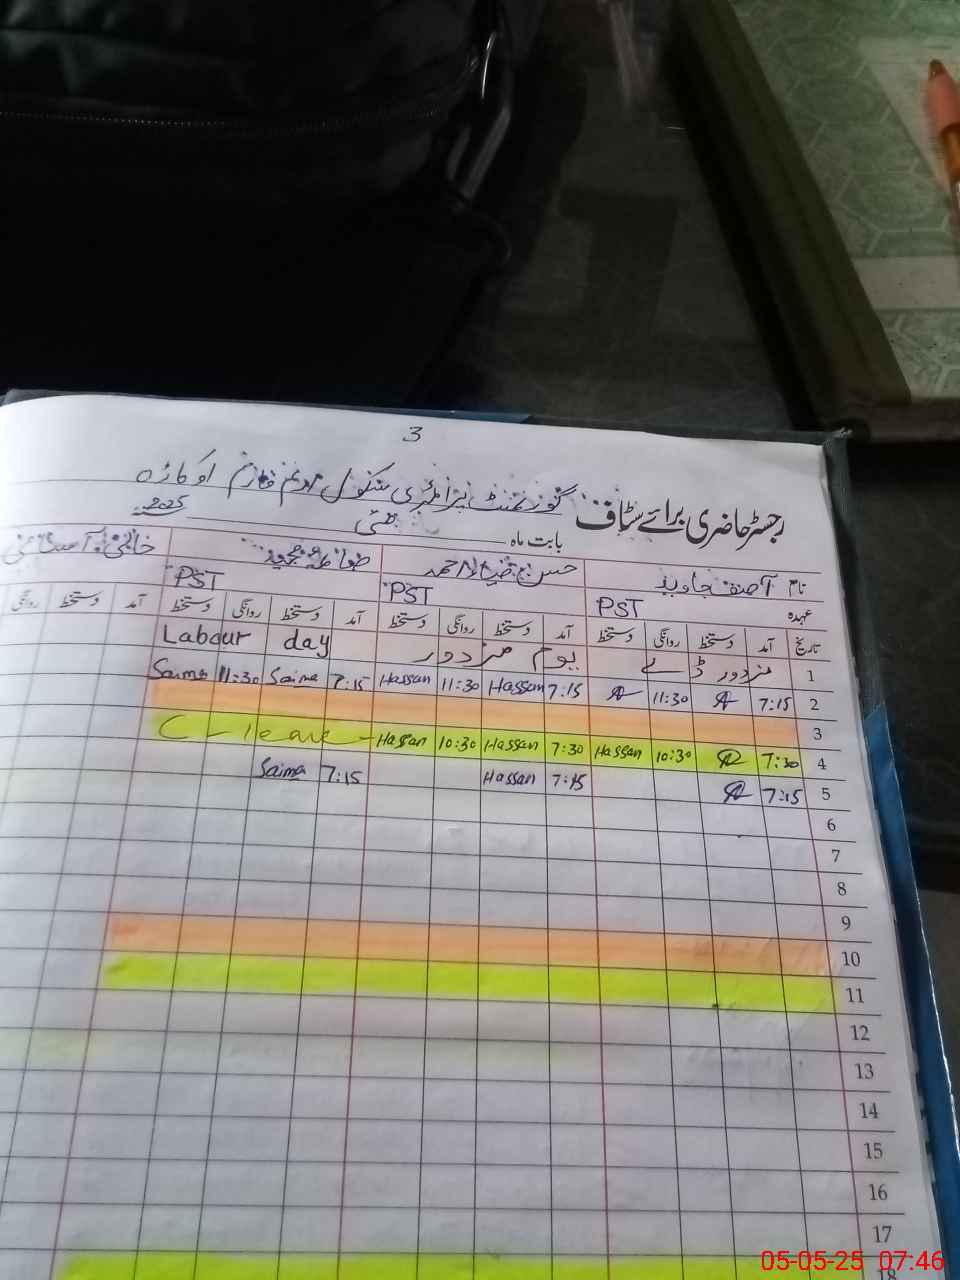 3
گورنمنٹ پرائمری سکول اوکاڑہ
رجسٹر حاضری برائے سٹاف
بابت ماہ مئی 2025
نام آصف جاوید حسن ضیاء احمد
عہدہ PST PST PST
تاریخ آمد دستخط روانگی دستخط آمد دستخط روانگی دستخط آمد دستخط روانگی دستخط آمد دستخط روانگی
1 مزدور ڈے یوم مزدور Labour day
2 7:15 11:30 7:15 Hassan 11:30 Hassan 7:15 Saima 11:30 Saima
3
4 7:30 10:30 Hassan 7:30 Hassan 10:30 Hassan C Leave
5 7:15 7:15 Hassan 7:15 Saima
6
7
8
9
10
11
12
13
14
15
16
17
18
05-05-25 07:46